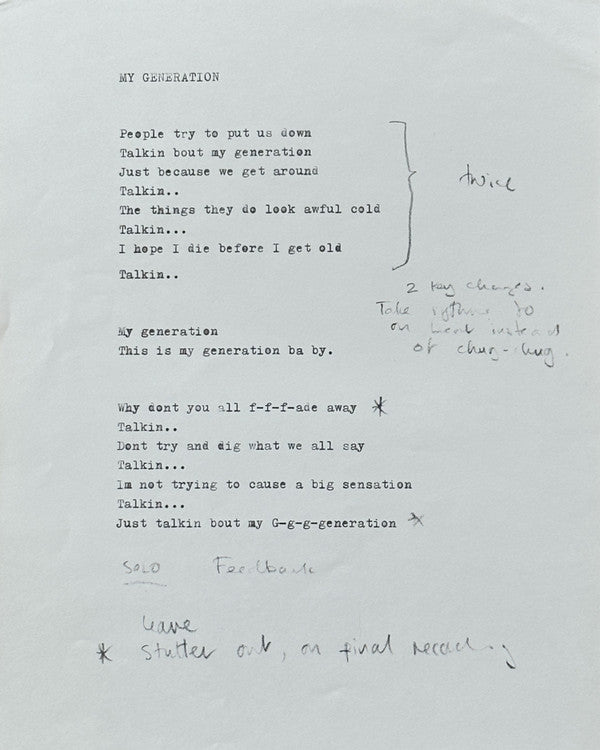 MY GENERATION
People try to put us down
Talkin bout my generation
Just because we get around
Talkin..
The things they do look awful cold
Talkin...
I hope I die before I get old
Talkin..
twice
2 key changes.
Take rythm to
on beat instead
of chug-chug.
My generation
This is my generation ba by.
Why dont you all f-f-f-ade away *
Talkin..
Dont try and dig what we all say
Talkin...
Im not trying to cause a big sensation
Talkin...
Just talkin bout my G-g-g-generation *
SOLO Feedback
leave
* Stutter out, on final recording